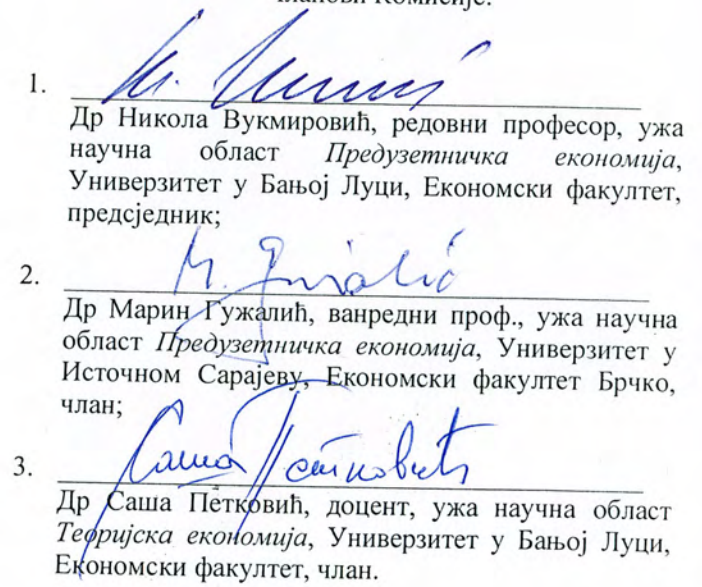 чланови Комисије:
1.
Др Никола Вукмировић, редовни професор, ужа
научна област Предузетничка економија,
Универзитет у Бањој Луци, Економски факултет,
предсједник;
2.
Др Марин Гужалић, ванредни проф., ужа научна
област Предузетничка економија, Универзитет у
Источном Сарајеву, Економски факултет Брчко,
члан;
3. Саша Петковић
Др Саша Петковић, доцент, ужа научна област
Теоријска економија, Универзитет у Бањој Луци,
Економски факултет, члан.